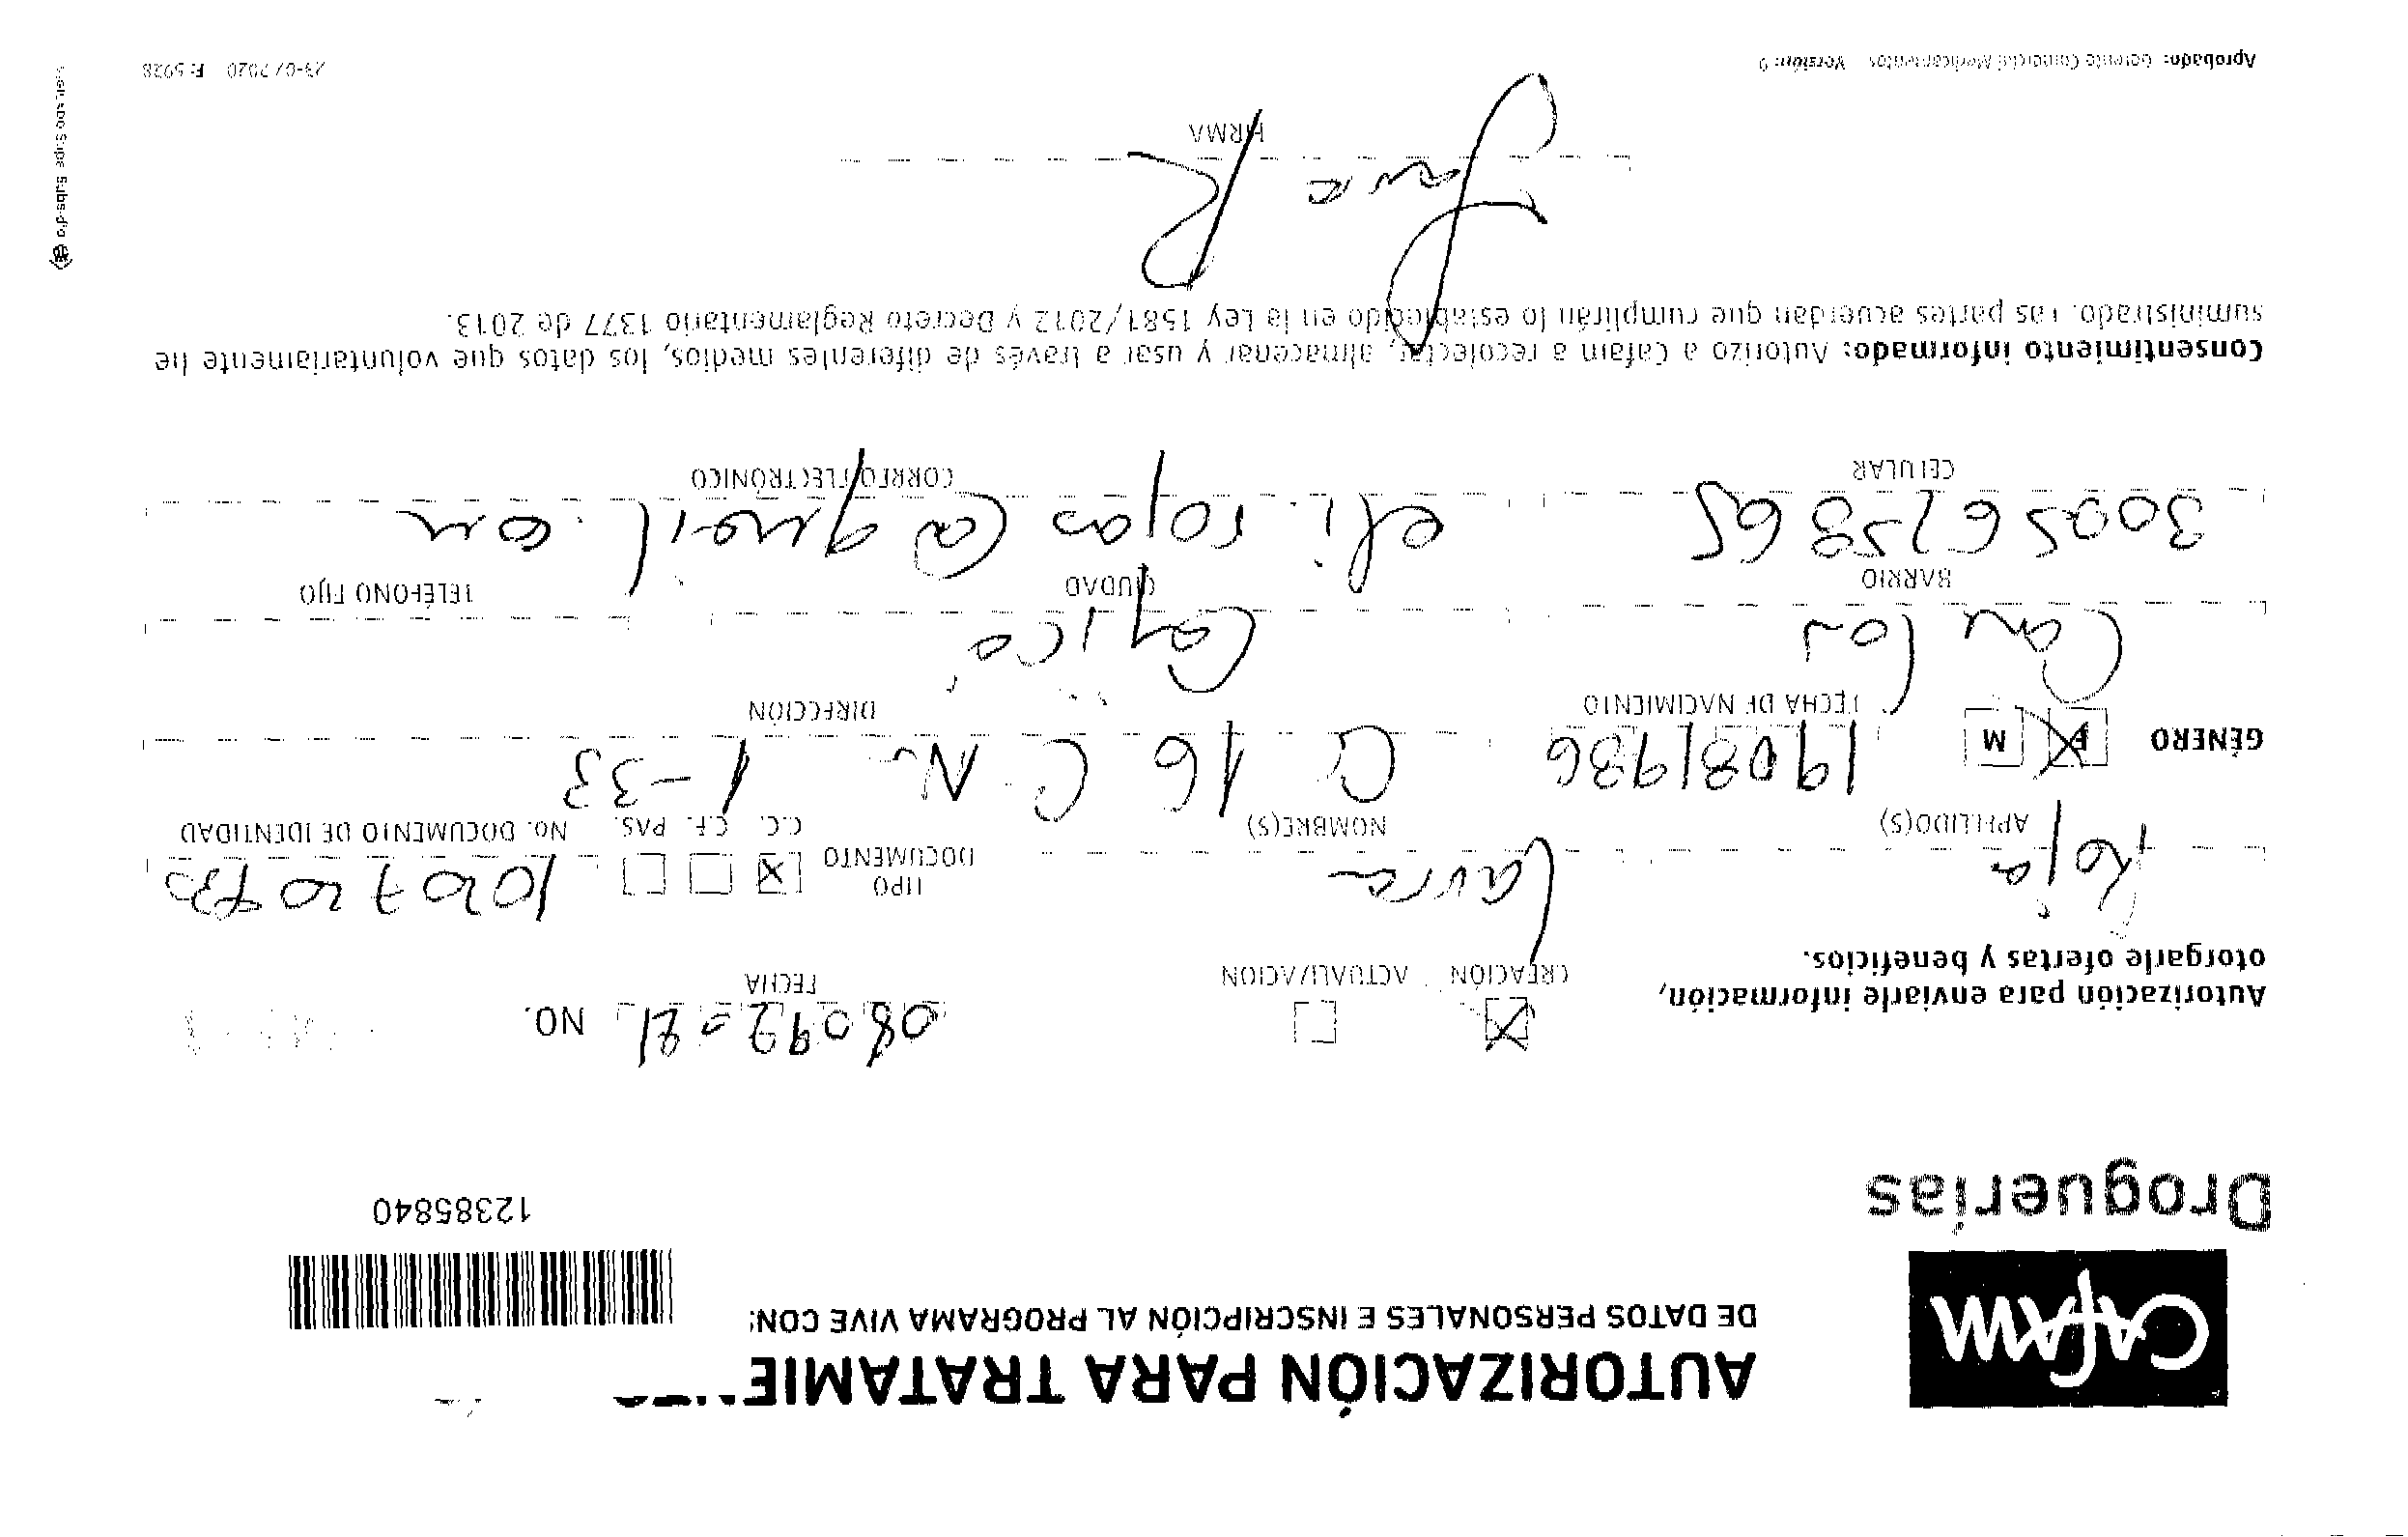 CAFAM
Droguerías
AUTORIZACIÓN PARA TRATAMIE
DE DATOS PERSONALES E INSCRIPCIÓN AL PROGRAMA VIVE CON:
12385840
Autorización para enviarle información,
otorgarle ofertas y beneficios.
CREACIÓN ACTUALIZACIÓN
08092021 NO.
FECHA
Rojas Laura
APELLIDO(S) NOMBRE(S)
TIPO DOCUMENTO C.C. C.E. PAS.
NO. DOCUMENTO DE IDENTIDAD
GÉNERO F M 19081986 C 16 C N 1-33
FECHA DE NACIMIENTO DIRECCIÓN
BARRIO CIUDAD TELÉFONO FIJO
eli.rojas@gmail.com
CELULAR CORREO ELECTRÓNICO
Consentimiento informado: Autorizo a Cafam a recolectar, almacenar y usar a través de diferentes medios, los datos que voluntariamente he
suministrado. Las partes acuerdan que cumplirán lo establecido en la Ley 1581/2012 y Decreto Reglamentario 1377 de 2013.
Laura R
FIRMA
Aprobado: Gerente Comercial Medicamentos Versión: 9
23-07-2020 F: 5928